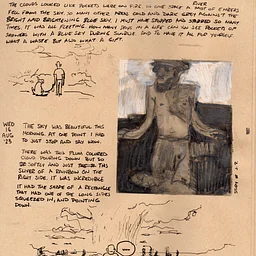 THE CLOUDS LOOKED LIKE POCKETS WERE ON FIRE. IN ONE SPACE A MIST OF EMBERS
RIVER
FELL FROM THE SKY. SO MANY OTHER AREAS COLD AND DARK GREY AGAINST THE
BRIGHT AND BRIGHTENING BLUE SKY. I MUST HAVE STOPPED AND STARED SO MANY
TIMES. IT WAS ALL FLEETING. HOW MANY DAYS IN A LIFE CAN WE SEE POCKETS OF
SHOWERS WITH A BLUE SKY DURING SUNRISE. AND TO HAVE IT ALL FOR YOURSELF.
WHAT A WASTE. BUT ALSO WHAT A GIFT.
WED
16
AUG
'23
THE SKY WAS BEAUTIFUL THIS
MORNING. AT ONE POINT I HAD
TO JUST STOP AND SAY WOW.
THERE WAS THIS PLUM COLORED
CLOUD POURING DOWN BUT SO
SO SOFTLY AND JUST THE
SLIVER OF A RAINBOW ON THE
RIGHT SIDE. IT WAS INCREDIBLE.
IT HAD THE SHAPE OF A RECTANGLE
THAT HAD ONE OF THE LONG SIDES
SQUEEZED IN, AND POINTING
DOWN.